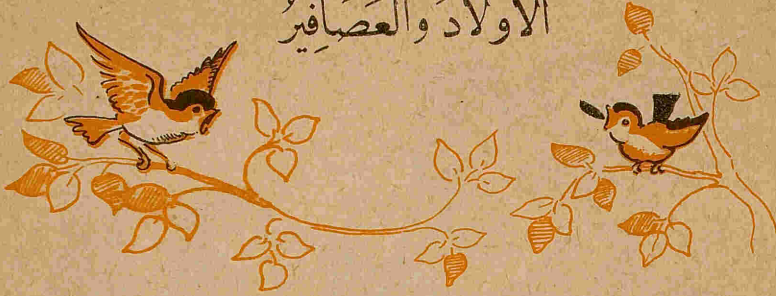 الأولادُ والعَصَافِيرُ